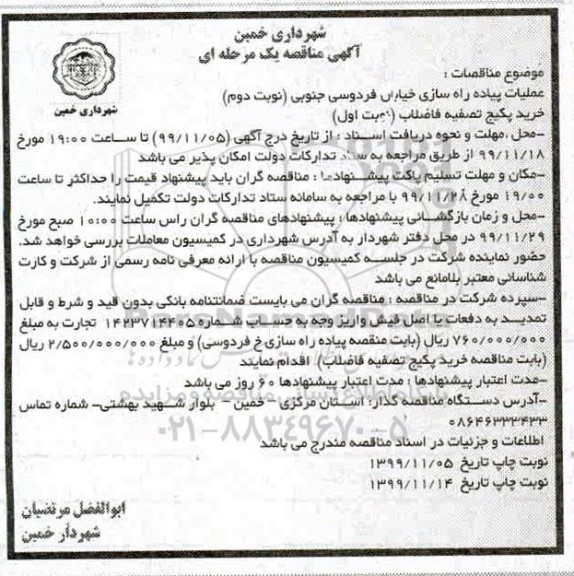 شهرداری خمین
آگهی مناقصه یک مرحله ای
شهرداری خمین
موضوع مناقصات :
عملیات پیاده راه سازی خیابان فردوسی جنوبی (نوبت دوم)
خرید پکیج تصفیه فاضلاب (نوبت اول)
-محل ،مهلت و نحوه دریافت اسناد : از تاریخ درج آگهی (۹۹/۱۱/۰۵) تا ساعت ۱۹:۰۰ مورخ
۹۹/۱۱/۱۸ از طریق مراجعه به ستاد تدارکات دولت امکان پذیر می باشد
-مکان و مهلت تسلیم پاکت پیشنهادها : مناقصه گران باید پیشنهاد قیمت را حداکثر تا ساعت
۱۹/۰۰ مورخ ۹۹/۱۱/۲۸ با مراجعه به سامانه ستاد تدارکات دولت تکمیل نمایند.
-محل و زمان بازگشائی پیشنهادها : پیشنهادهای مناقصه گران راس ساعت ۱۰:۰۰ صبح مورخ
۹۹/۱۱/۲۹ در محل دفتر شهردار به آدرس شهرداری در کمیسیون معاملات بررسی خواهد شد.
حضور نماینده شرکت در جلسه کمیسیون مناقصه با ارائه معرفی نامه رسمی از شرکت و کارت
شناسائی معتبر بلامانع می باشد
-سپرده شرکت در مناقصه : مناقصه گران می بایست ضمانتنامه بانکی بدون قید و شرط و قابل
تمدید به دفعات یا اصل فیش واریز وجه به حساب شماره ۱۴۲۳۷۱۴۴۰۵ تجارت به مبلغ
۷۶۰/۰۰۰/۰۰۰ ریال (بابت منقصه پیاده راه سازی خ فردوسی) و مبلغ ۲/۵۰۰/۰۰۰/۰۰۰ ریال
(بابت مناقصه خرید پکیج تصفیه فاضلاب) اقدام نمایند
-مدت اعتبار پیشنهادها : مدت اعتبار پیشنهادها ۶۰ روز می باشد
-آدرس دستگاه مناقصه گذار: استان مرکزی – خمین – بلوار شهید بهشتی- شماره تماس
۰۸۶۴۶۳۳۲۴۳۳
اطلاعات و جزئیات در اسناد مناقصه مندرج می باشد
نوبت چاپ تاریخ ۱۳۹۹/۱۱/۰۵
نوبت چاپ تاریخ ۱۳۹۹/۱۱/۱۴
ابوالفضل مرتضیان
شهردار خمین
ParsNamadData
۰۲۱-۸۸۳۴۹۶۷۰-۵